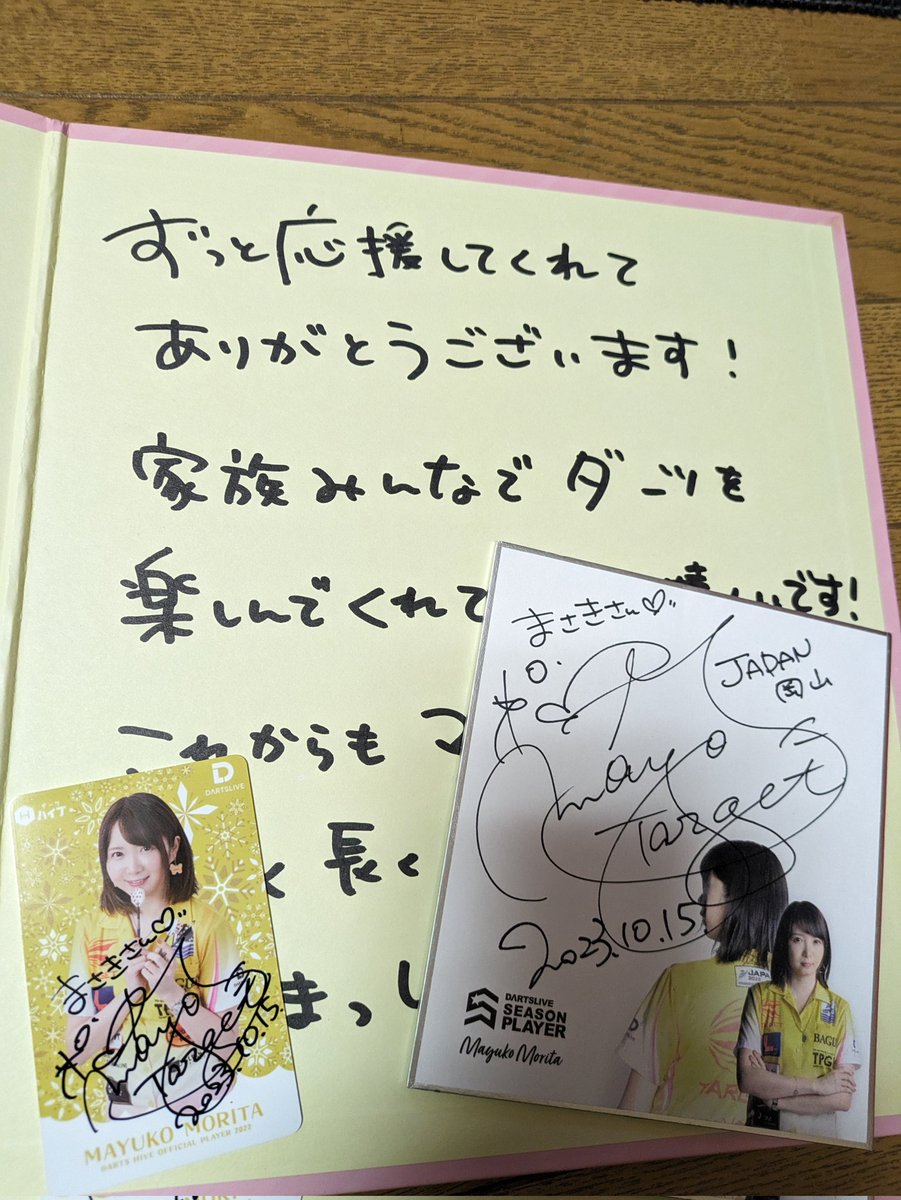 ずっと応援してくれて
ありがとうございます!
家族みんなでダーツを
楽しんでくれて
いです!
これからも
長く
まっし
まさきさん♡
to.
JAPAN
岡山
mayo
Target
2023.10.15
JAPA
DARTSLIVE
SEASON
PLAYER
Mayuko Morita
BAGU
TPG
ハイブ
DARTSLIVE
まさきさん♡
to.
mayo
Target
2023.10.15.
MAYUKO MORITA
DARTS HIVE OFFICIAL PLAYER 2022